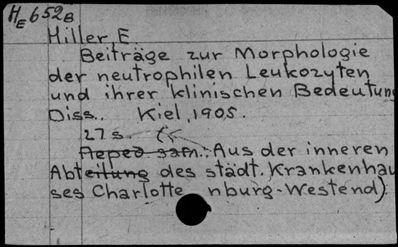 HE 652B
Hiller E
Beiträge zur Morphologie
der neutrophilen Leukozyten
und ihrer klinischen Bedeutung
Diss. Kiel, 1905.
27 s.
Aus der inneren
Abteilung des städt. Krankenhau
ses Charlotte nburg-Westend)